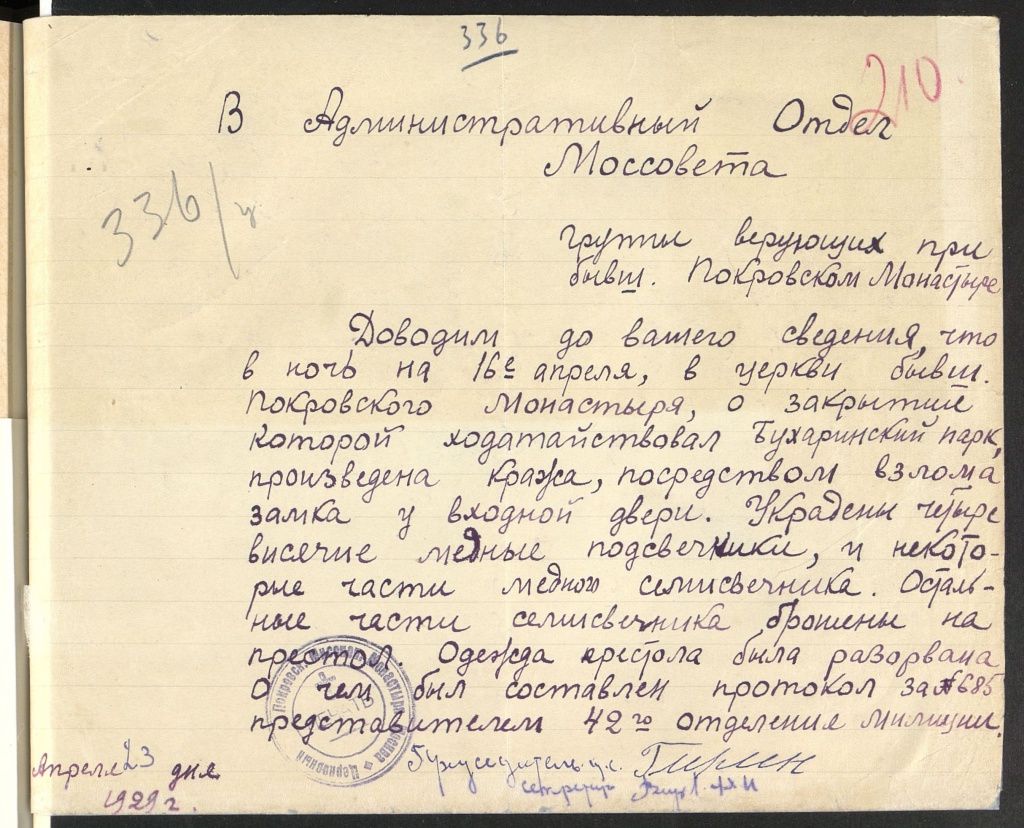 336
210
В Административный Отдел
Моссовета
336/
группы верующих при
бывш. Покровском Монастыре
Доводим до вашего сведения, что
в ночь на 16е апреля, в церкви бывш.
Покровского Монастыря, о закрытий
которой ходатайствовал Бухаринский парк,
произведена кража, посредством взлома
замка у входной двери. Украдены четыре
висячие медные подсвечники, и некото-
рые части медного семисвечника. Осталь-
ные части семисвечника брошены на
престол. Одежда престола была разорвана
О чем был составлен протокол за № 685
представителем 42го отделения милиции.
Апреля 23 дня
1929 г.
секретарь